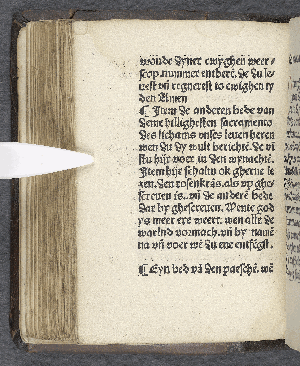 wonde dyner ewyghen weer-
scop nummer entberē. de du le-
uest vn̄ regnerest to ewighen ty
den Amen
¶ Item de anderen bede van
deme hillighesten sacramento
des lichams vnses leuen heren
wen du dy wult berichtē. de vi
stu hijr voer in den wynachtē.
Item hijr schaltu ok gherne le
zen. den rosenkrās. als vp ghe-
screuen is. vn̄ de anderē bede
dar by ghescreuen. Wente god
ys meer ere weert. wen alle de
werlnd vormach. vn̄ by namē
na vn̄ voer wē du ene entfēgst.
¶ Eyn bed vā den paeschē. wē